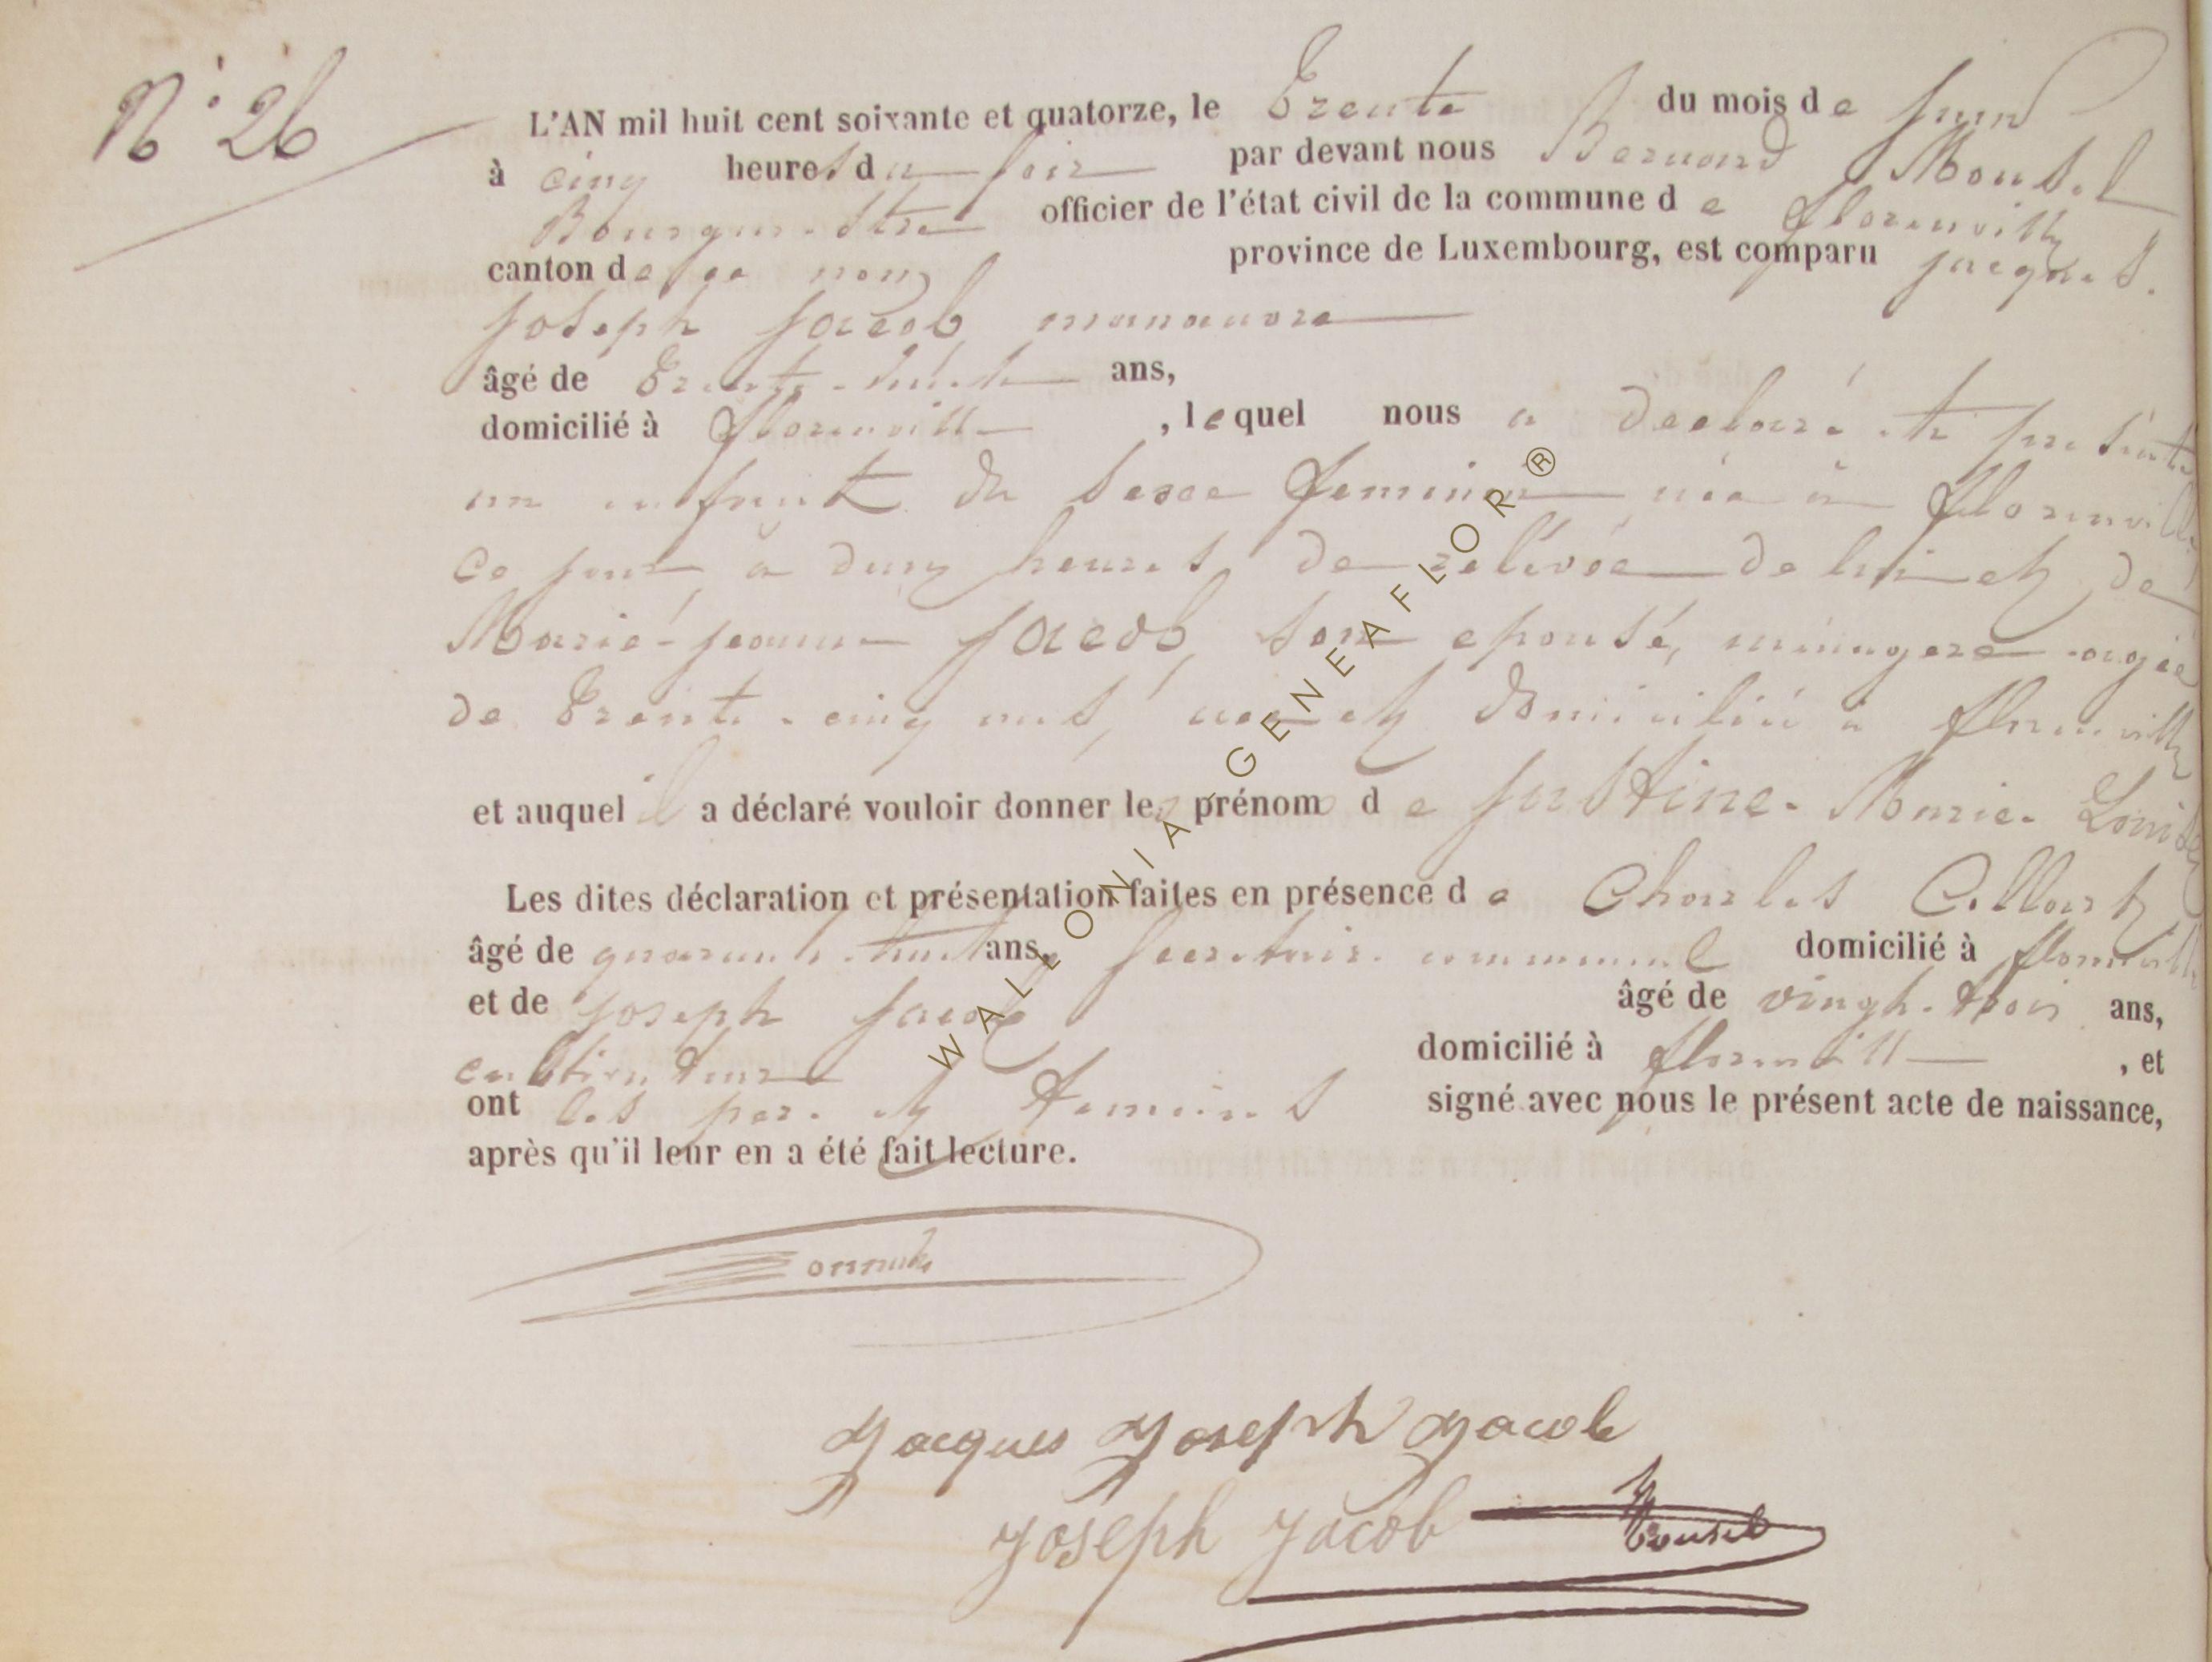 N° 26
L'AN mil huit cent soixante et quatorze, le Trente du mois de juin
à cinq heures du soir par devant nous Bernard Mousel
Bourgmestre officier de l'état civil de la commune de florenville
canton de ce nom province de Luxembourg, est comparu jacques.
joseph jacob, manœuvre
âgé de Trente-huit ans,
domicilié à florenville, lequel nous a declaré et présenté
un enfant du sexe feminin née à florenville
ce jour, à deux heures de relévée de lui et de
Marié-jeanne jacob, son epousé, ménagere agée
de Trente-cinq ans, née et domiciliée à florenville
et auquel il a déclaré vouloir donner les prénoms de justine-Marie-Louise
Les dites déclaration et présentation faites en présence de Charles Collart
âgé de quarante-huit ans, secretaire communal domicilié à florenville
et de joseph jacob âgé de vingt-trois ans,
cultivateur domicilié à florenville, et
ont les pere et temoins signé avec nous le présent acte de naissance,
après qu'il leur en a été fait lecture.
Jacques Joseph Jacob
Joseph Jacob Mousel
WALLONIA GENEAFLOR ®